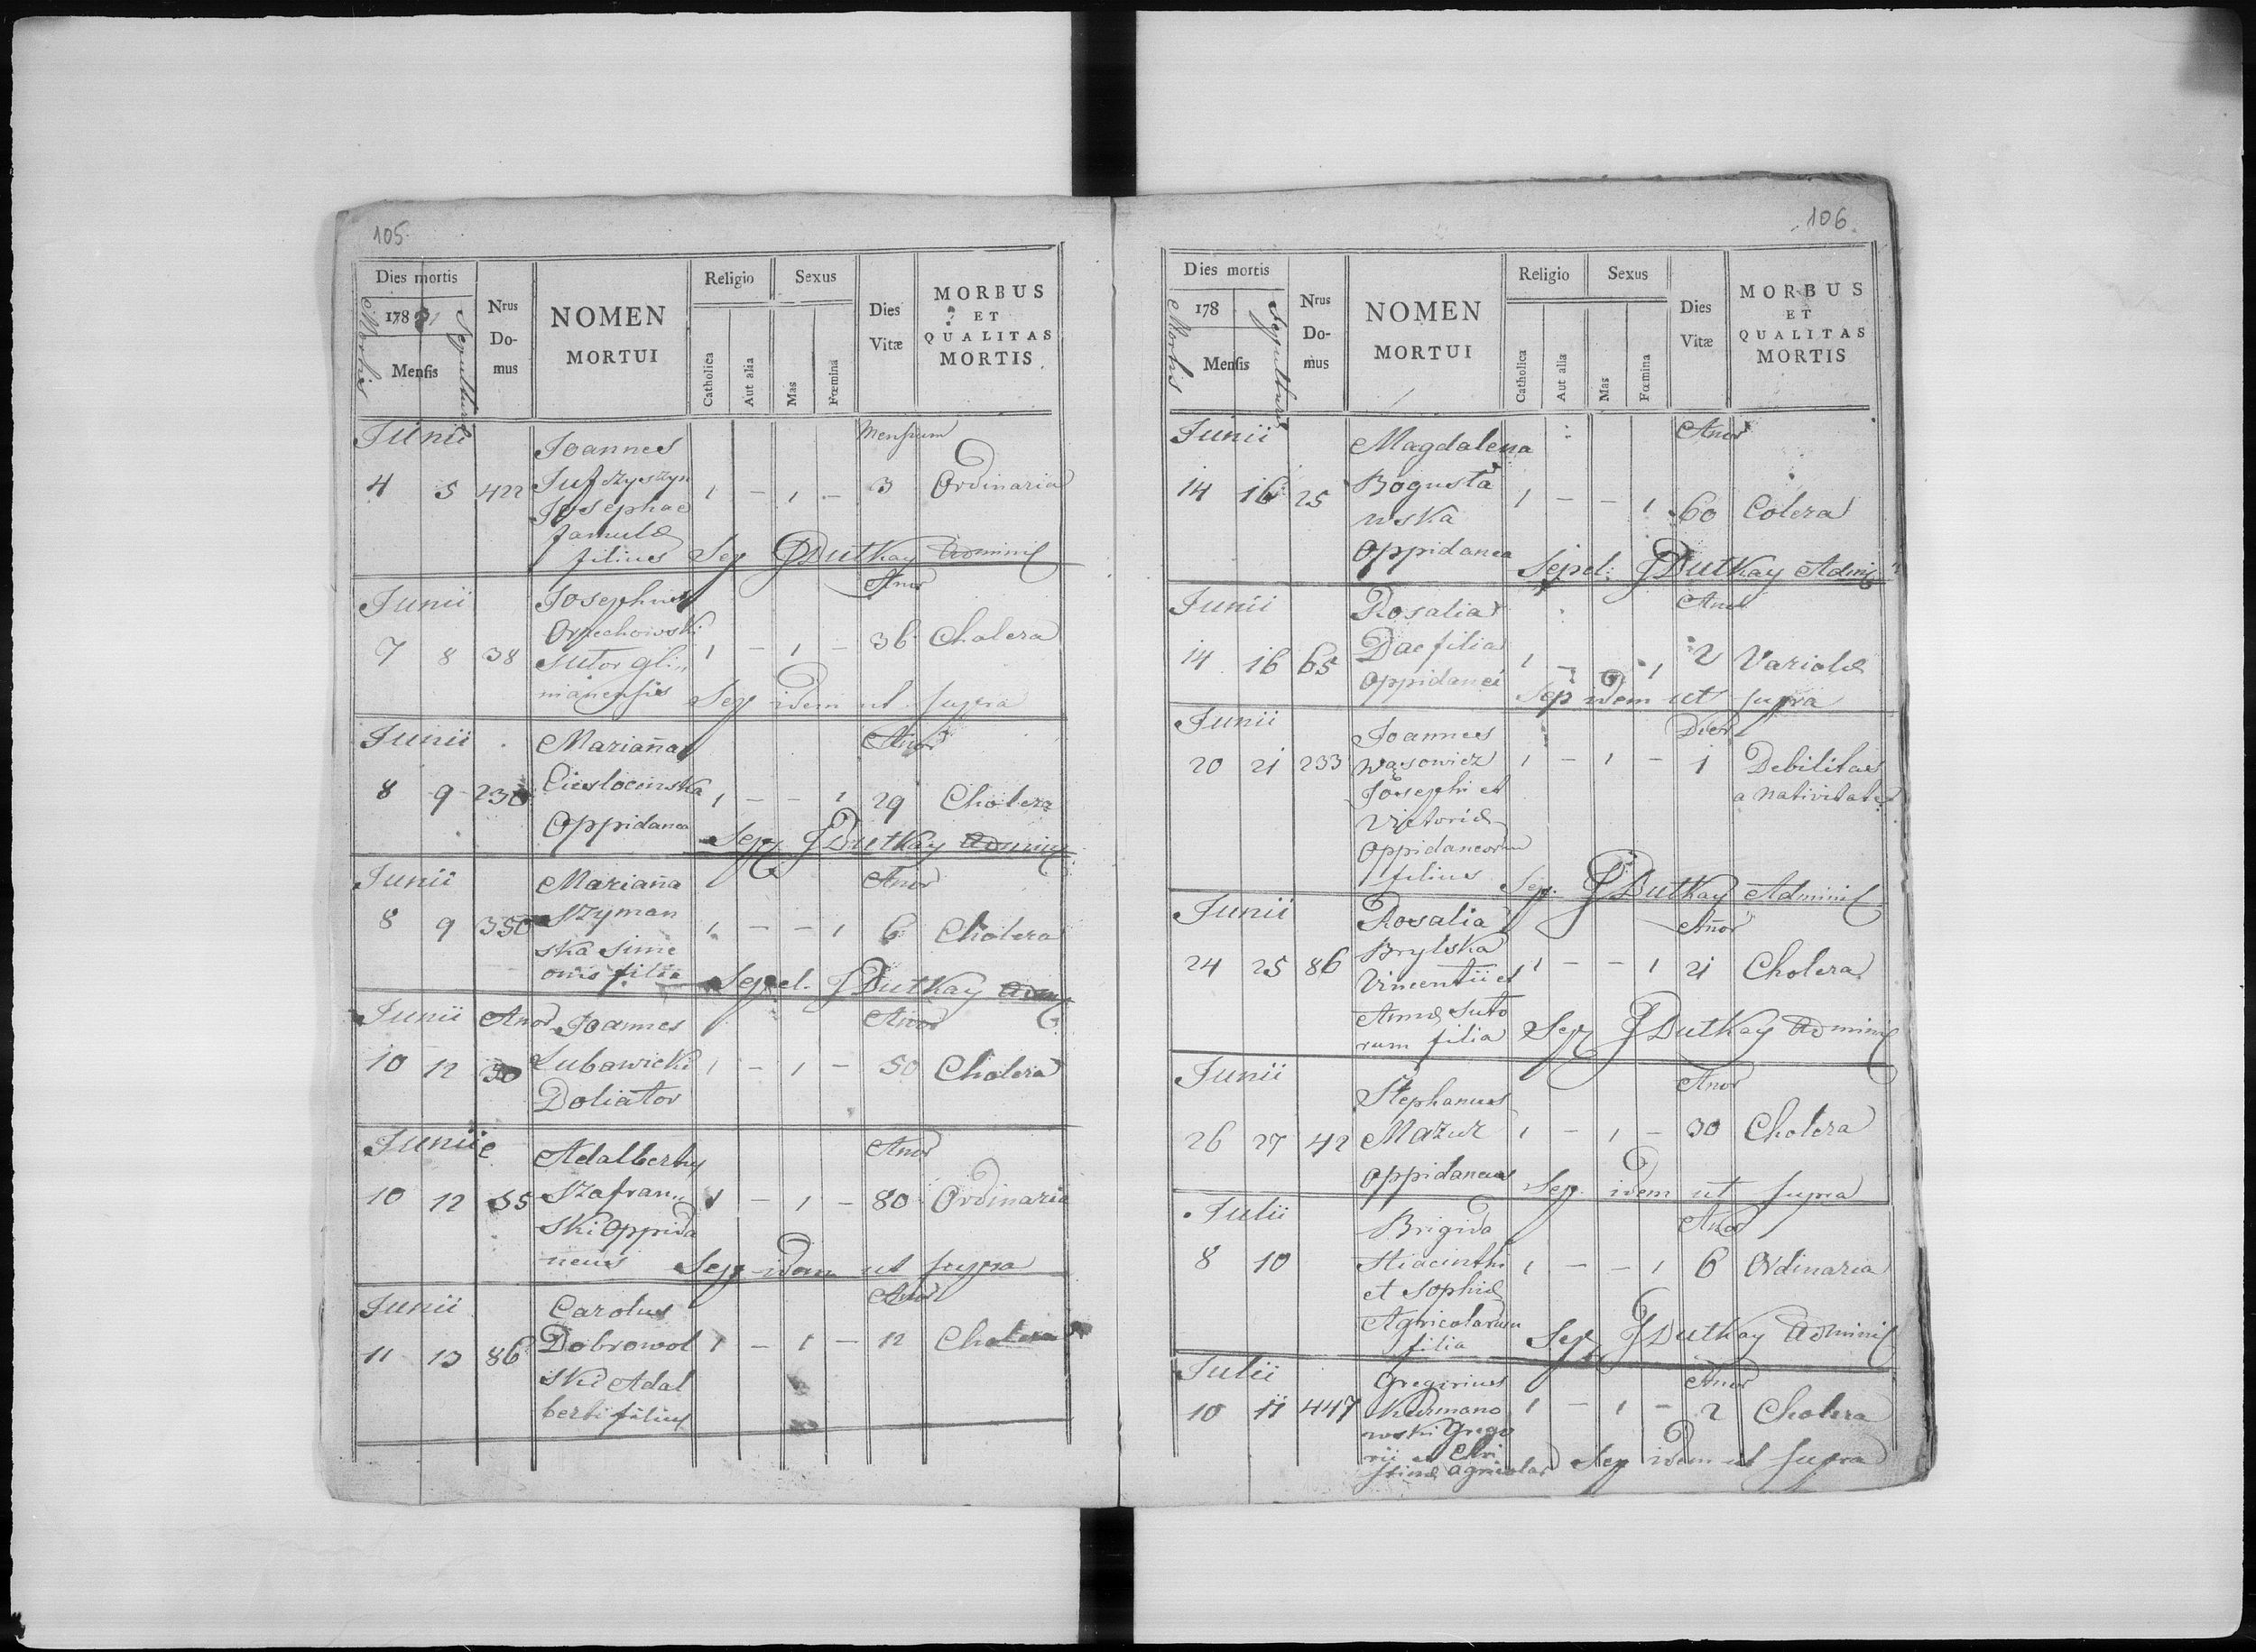 105
Dies mortis
Nrus Do- mus
NOMEN MORTUI
Religio
Sexus
Dies Vitæ
MORBUS ET QUALITAS MORTIS
178
Mortis
Sepulturæ
Mensis
Catholica
Aut alia
Mas
Fœmina
Junii
Joannes
Mensium
4 5 422
1 - 1 - 3 Ordinaria
Josephae
famulæ
filius Sep JDutkay Adminis
Junii Josephus Anor
Orzechowski
7 8 38 1 - 1 - 36 Cholera
sutor gli,,
nianensis Sep idem ut supra
Junii Marianna Anor
8 9 230 Cieslocinska 1 - - 1 29 Cholera
Oppidanea Sep JDutkay Adminis
Junii Marianna Anor
8 9 350 Szyman 1 - - 1 6 Cholera
ska Sime
onis filia Sepel. JDutkay Admis
Junii Anor Joannes Anor
10 12 30 Lubowicki 1 - 1 - 50 Cholera
Doliator
Junii Adalbertus Anor
10 12 55 Szafran,, 1 - 1 - 80 Ordinaria
ski Oppida
neus Sep idem ut supra
Junii Carolus Anor
11 13 86 Dobrowol 1 - 1 - 12 Cholera
ski Adal
berti filius
106
Dies mortis
Nrus Do- mus
NOMEN MORTUI
Religio
Sexus
Dies Vitæ
MORBUS ET QUALITAS MORTIS
178
Mortis
Sepulturæ
Mensis
Catholica
Aut aliæ
Mas
Fœmina
Junii Magdalena Anor
14 16 25 Bogusła 1 - - 1 60 Colera
wska
Oppidanea Sepel: JDutkay Adminis
Junii Rosalia Anor
14 16 65 Dac filia 1 - - 1 2 Variolæ
Oppidanei Sep idem ut supra
Junii Joannes Dier
20 21 233 Wąsowicz 1 - 1 - 1 Debilitas
Josephi et a nativitate
Victoriæ
Oppidaneorum
filius Sep. JDutkay Adminis
Junii Rosalia Anor
24 25 86 Brylska 1 - - 1 21 Cholera
Vincentii et
Annæ Suto
rum filia Sep JDutkay Adminis
Junii Stephanus Anor
26 27 42 Mazur 1 - 1 - 30 Cholera
Oppidaneus Sep. idem ut supra
Julii Brigida Anor
8 10 Hiacinthi 1 - - 1 6 Ordinaria
et Sophiæ
Agricolarum
filia Sep JDutkay Adminis
Julii Gregorius Anor
10 11 447 Kurmano 1 - 1 - 2 Cholera
wski Grego
rii et Chri
stinæ agricolar Sep idem ut supra